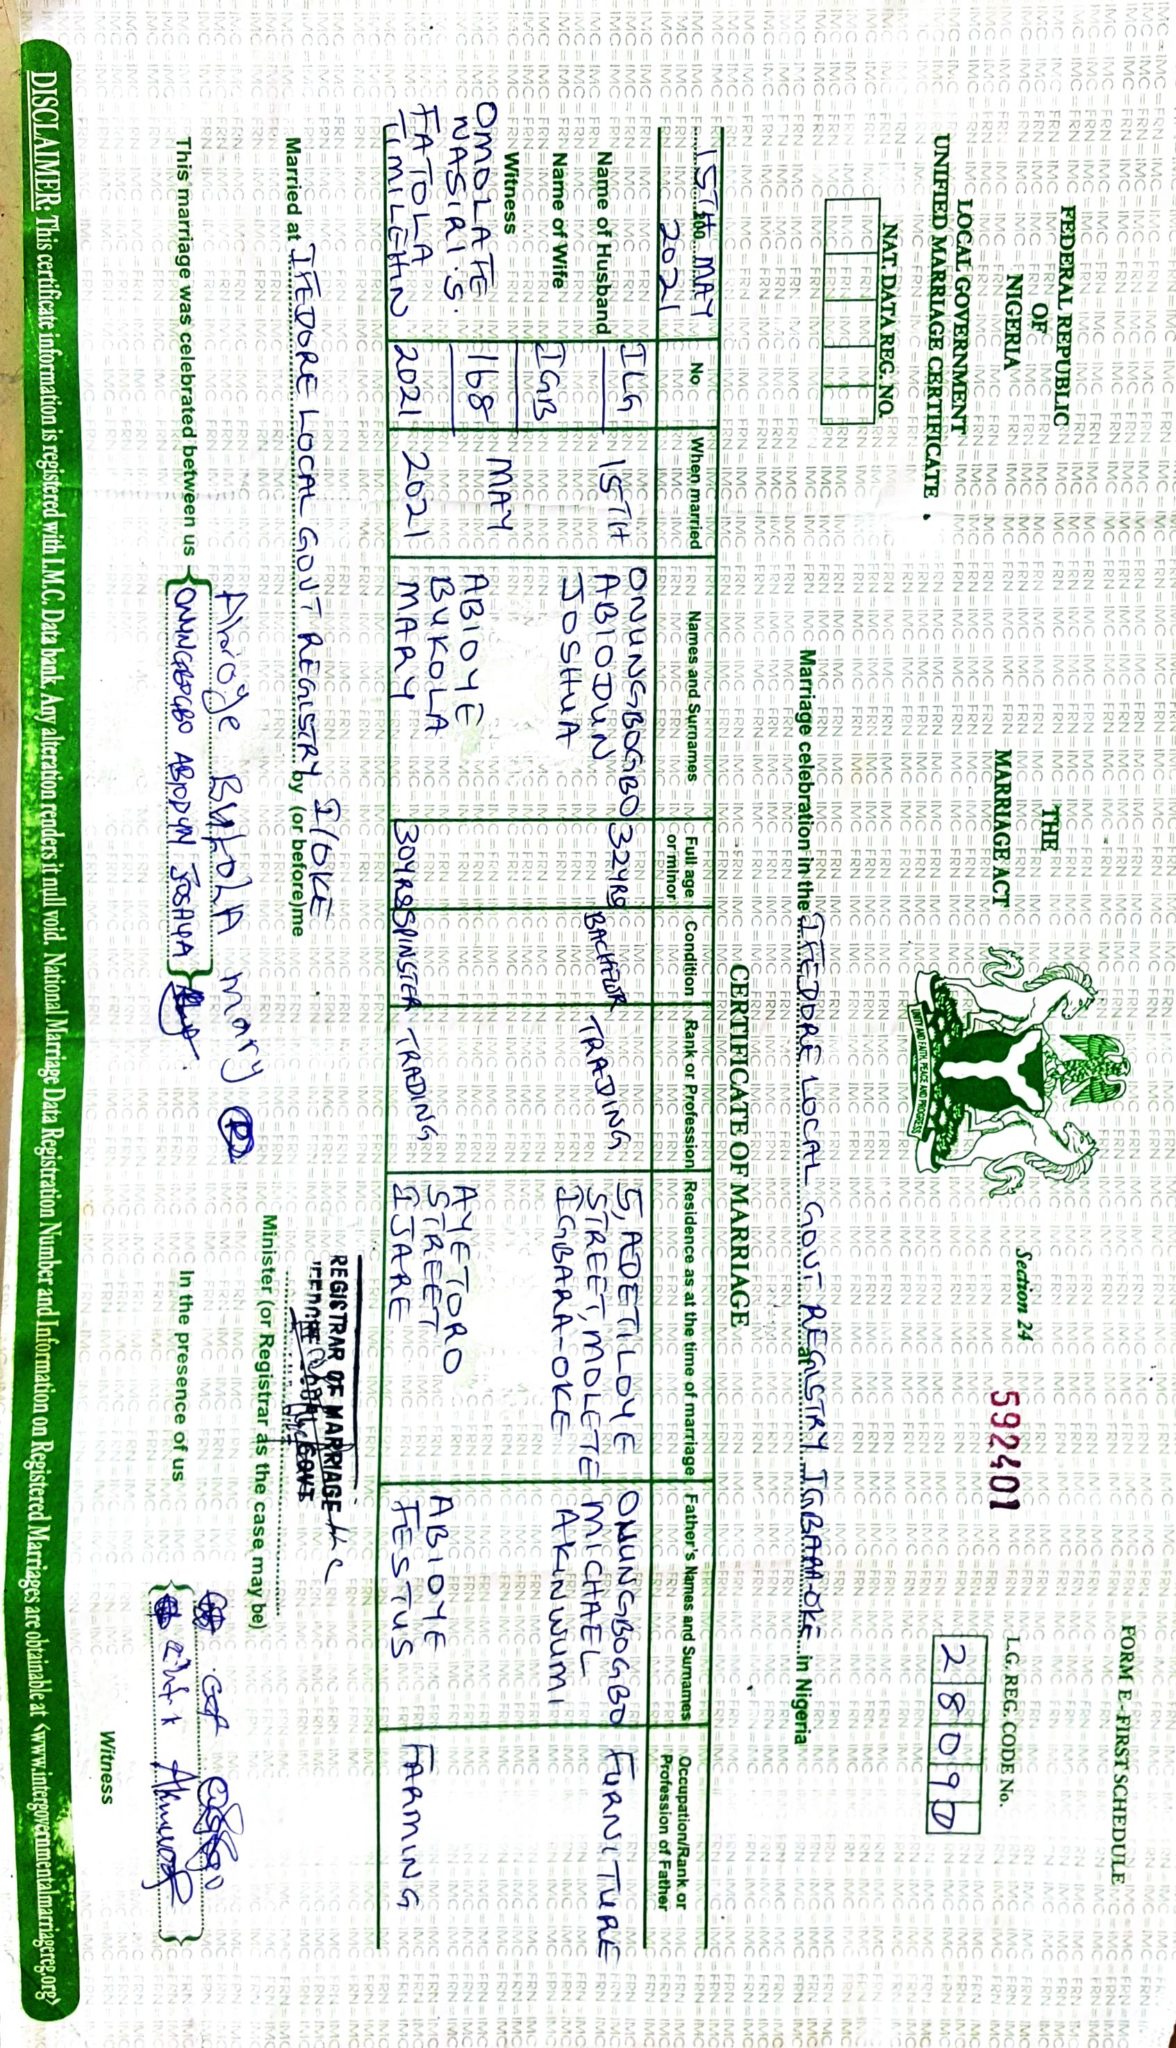 FORM E - FIRST SCHEDULE
FEDERAL REPUBLIC
OF
NIGERIA
THE
MARRIAGE ACT
Section 24
592401
L.G. REG. CODE No.
2 8 0 9 D
LOCAL GOVERNMENT
UNIFIED MARRIAGE CERTIFICATE.
UNITY AND FAITH, PEACE AND PROGRESS
NAT. DATA REG. NO.
Marriage celebration in the IFEDORE LOCAL GOVT REGISTRY IGBARA-OKE in Nigeria
CERTIFICATE OF MARRIAGE
15TH MAY
200
2021
No
When married
Names and Surnames
Full age or minor
Condition
Rank or Profession
Residence as at the time of marriage
Father's Names and Surnames
Occupation/Rank or Profession of Father
Name of Husband
ILG
15TH
ONUNGBOGBO
ABIODUN
JOSHUA
32YRS
BACHELOR
TRADING
5, ADETILOYE
STREET, MOLETE
IGBARA-OKE
ONUNGBOGBO
MICHAEL
AKINWUMI
FURNITURE
Name of Wife
IGB
Witness
OMOLAFE
NASIRI.S.
FATOLA
TIMILEHIN
168
2021
MAY
2021
ABIOYE
BUKOLA
MARY
30YRS
SPINSTER
TRADING
AYETORO
STREET
IJARE
ABIOYE
FESTUS
FARMING
Married at IFEDORE LOCAL GOVT REGISTRY I/OKE by (or before) me
REGISTRAR OF MARRIAGE
IFEDORE LOCAL GOVT
Minister (or Registrar as the case may be)
This marriage was celebrated between us
Abioye BukolA mary
ONUNGBOGBO ABIODUN JOSHUA
In the presence of us
Witness
DISCLAIMER: This certificate information is registered with I.M.C. Data bank. Any alteration renders it null void. National Marriage Data Registration Number and Information on Registered Marriages are obtainable at <www.intergovernmentalmarriagereg.org>